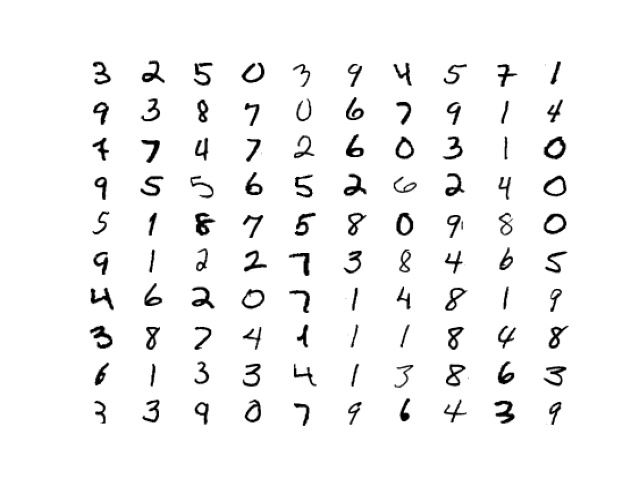 3 2 5 0 3 9 4 5 7 1
9 3 8 7 0 6 7 9 1 4
7 7 4 7 2 6 0 3 1 0
9 5 5 6 5 2 6 2 4 0
5 1 8 7 5 8 0 9 8 0
9 1 2 2 7 3 8 4 6 5
4 6 2 0 7 1 4 8 1 9
3 8 7 4 1 1 1 8 4 8
6 1 3 3 4 1 3 8 6 3
3 3 9 0 7 9 6 4 3 9